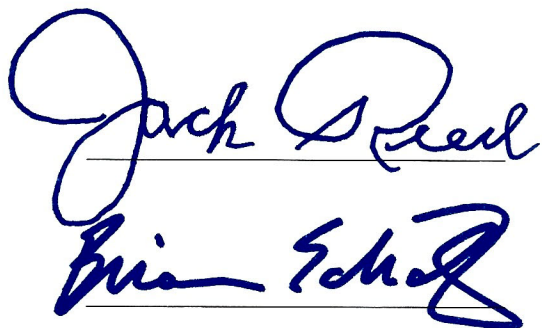 Jack Reed
Brian Schatz